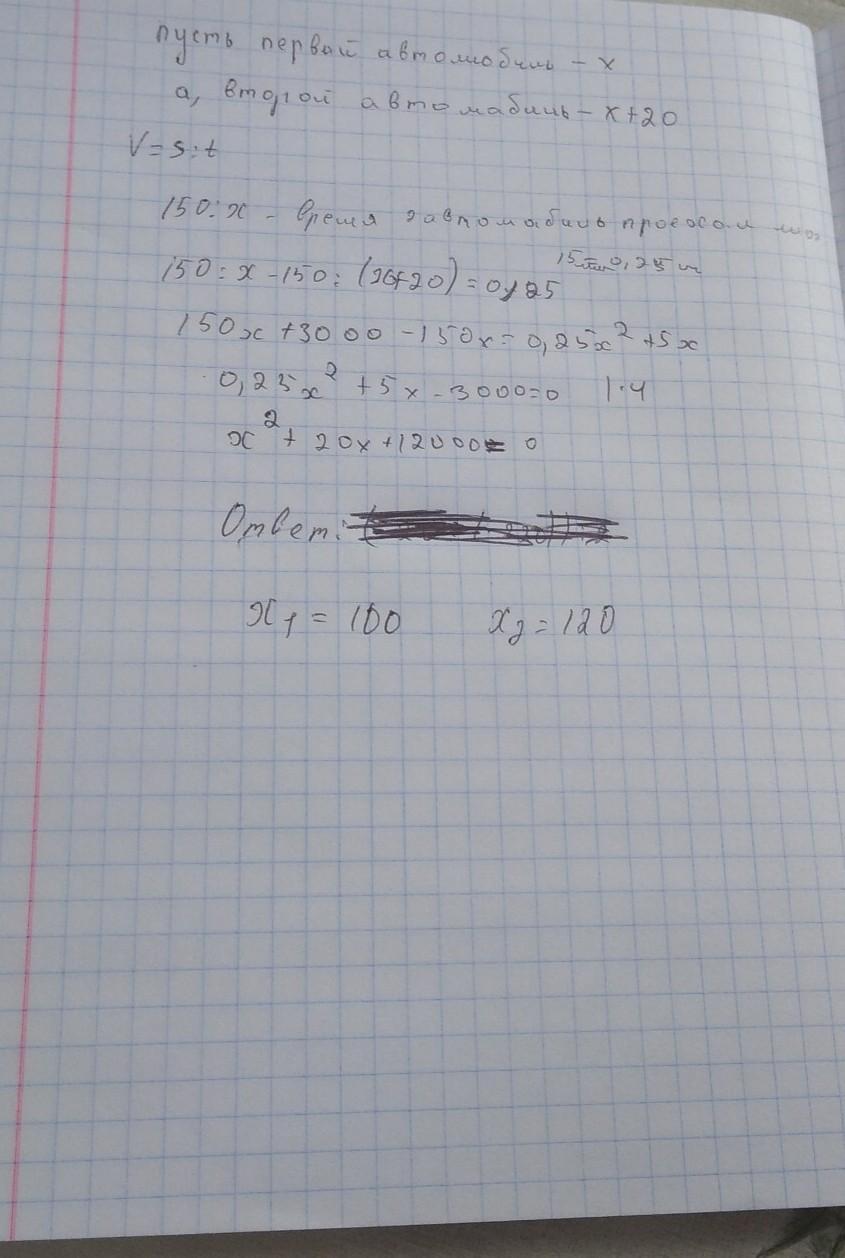 пусть первый автомобиль - x
а, второй автомабиль - x+20
V=s:t
150:x - время автомабиль
15 0,25
150:x-150:(x+20)=0,25
150x+3000-150x=0,25x²+5x
0,25x²+5x-3000=0 |·4
x²+20x+12000=0
Ответ:
x₁=100 x₂=120